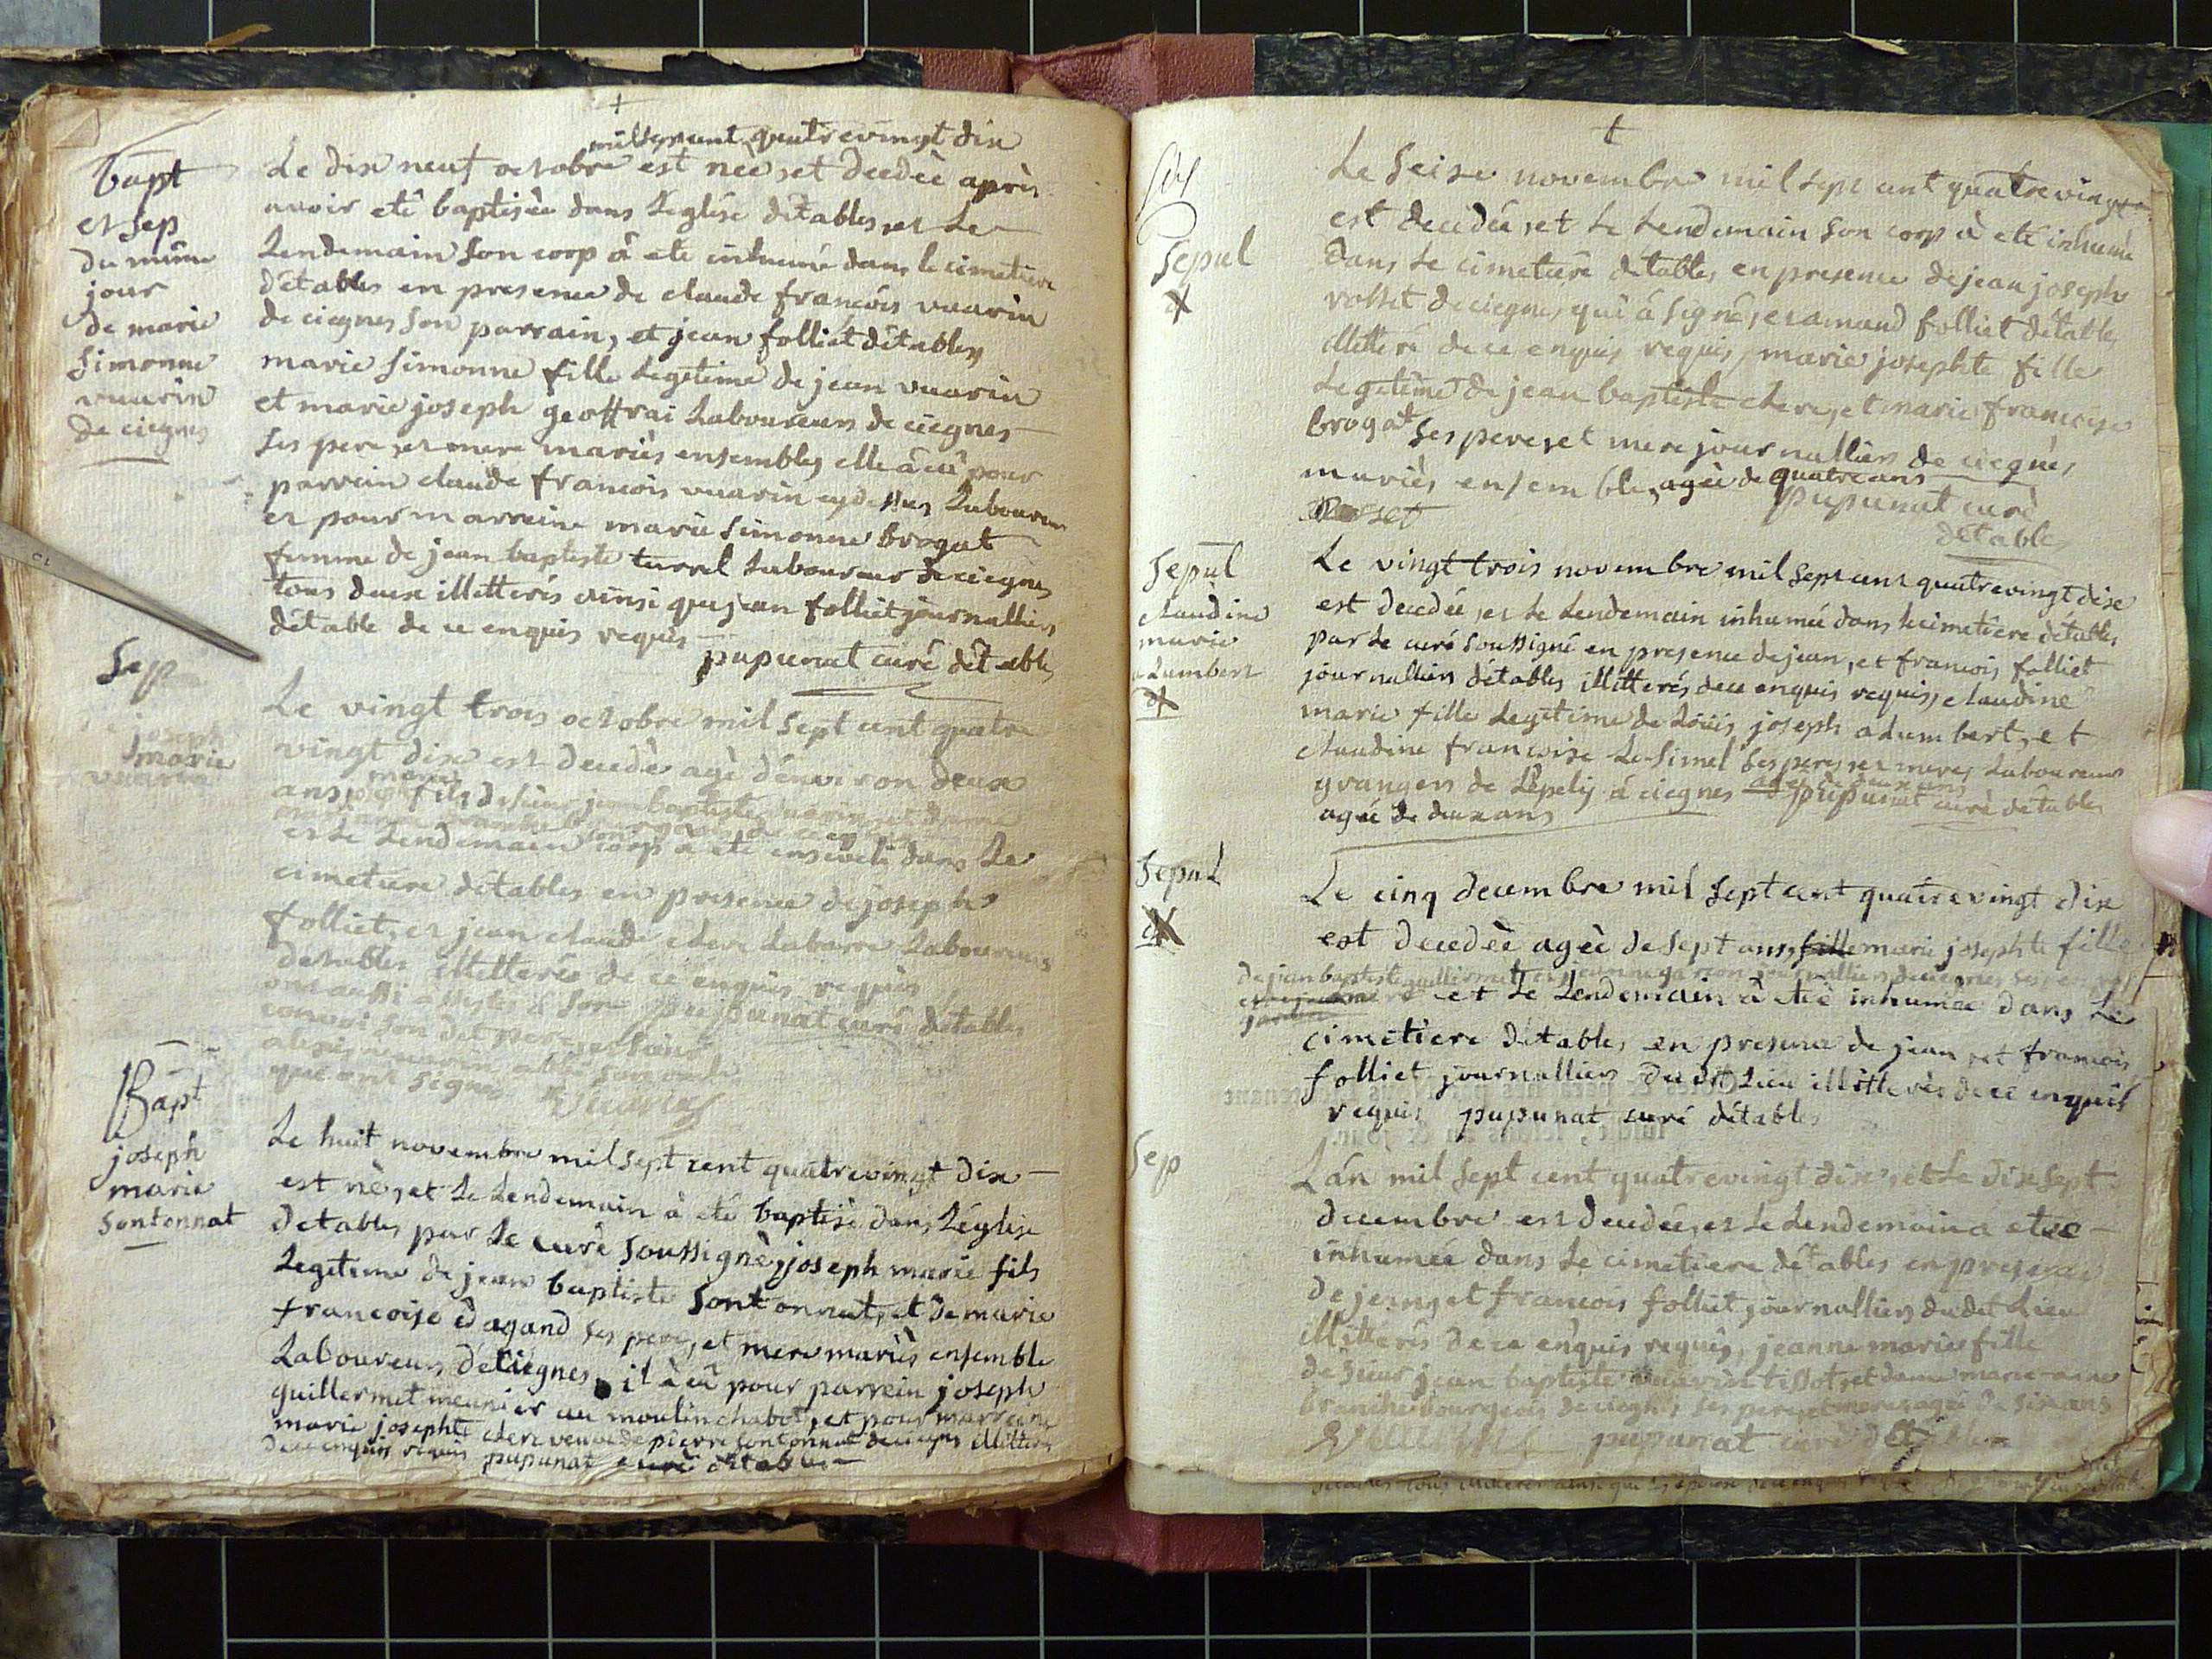 bapt
et sep
du même
jour
de marie
simonne
vuarin
de ciegnes
mil sept cent quatre vingt dix
Le dix neuf octobre est neè, et decedèe après
avoir etê baptisèe dans L'eglise d'ètables, et Le
Lendemain son corp à ete inhumé dans le cimetiere
d'étables en presence de claude françois vuarin
de ciegnes son parrain, et jean folliet d'ètables
marie simonne fille Legitime de jean vuarin
et marie joseph geoffrai Laboureurs de ciegnes
ses pere et mere mariès ensembles elle à eû pour
parrein claude francois vuarin cy dessus Laboureur
et pour marreine marie simonne brogat
femme de jean baptiste turrel Laboureur de ciegnes
tous deux illitterés ainsi que jean folliet journallier
d'étable de ce enquis requis
pupunat curé d'étables
Sep
joseph
marie
vuarin
Le vingt trois octobre mil sept cent quatre
vingt dix est decedè agè d'environ deux
ans fils de sieur jean baptiste vuarin et dame
et Le Lendemain corp a eté enseveli dans Le
cimetiere d'étables en presence de joseph
folliet, et jean claude clere Labarre Laboureurs
d'etables illitterés de ce enquis requis
ont aussi assistés à son pupunat curé d'étables
convoi son dit pere, et sieur
alexis vuarin abbé son oncle
qui ont signés Vuarin
Bapt
joseph
marie
sontonnat
Le huit novembre mil sept cent quatre vingt dix
est nè, et Le Lendemain à eté baptisè dans L'église
d'etables par Le curé soussignè, joseph marie fils
Legitime de jean baptiste sontonnat, et de marie
francoise dagand ses pere, et mere mariès ensemble
Laboureurs de Ciegnes, il à eû pour parrein joseph
guillermet meunier au moulin chabot, et pour marreine
marie josephte clere veuve de pierre sontonnat de ciegnes illitterés
de ce enquis requis pupunat curé d'étables
Sepul
Le seise novembre mil sept cent quatre vingt
est decedée, et Le Lendemain son corp à eté inhumé
dans Le cimetiere d'étables en presence de jean joseph
rosset de ciegnes qui à signé, et amand folliet d'étables
illitteré de ce enquis requis, marie josephte fille
Legitime de jean baptiste clere, et marie francoise
brogat ses pere, et mere journalliers de ciegnes
mariès ensemble, agèe de quatre ans
pupunat curè
d'étables
Rosset
Sepul
claudine
marie
alumbert
Le vingt trois novembre mil sept cent quatre vingt dixe
est decedée, et Le Lendemain inhumé dans Le cimetiere d'étables
par Le curé soussigné en presence de jean, et francois folliet
journalliers d'étables illitterés de ce enquis requis, claudine
marie fille Legitime de Loüis joseph alumbert, et
claudine francoise Lesimel ses pere, et mere, Laboureurs
grangers de L'epely à ciegnes pupunat curé d'étables
agée de deux ans
Sepul
Le cinq decembre mil sept cent quatre vingt dix
est decedèe agèe de sept ans fille marie josephte fille
de jean baptiste guillermet et
et Le Lendemain à eté inhumée dans Le
cimetiere d'étables en presence de jean, et francois
folliet journalliers du dit Lieu illitterés de ce enquis
requis pupunat curé d'étables
Sep
L'an mil sept cent quatre vingt dix, et Le dix sept
decembre est decedée, et Le Lendemain a eté
inhumée dans Le cimetiere d'étables en presence
de jean, et francois folliet journalliers du dit Lieu
illitterés de ce enquis requis, jeanne marie fille
de sieur jean baptiste vuarin tissot, et dame marie anne
branche bourgeois de ciegnes ses pere, et mere agée de six ans
pupunat curé d'étables